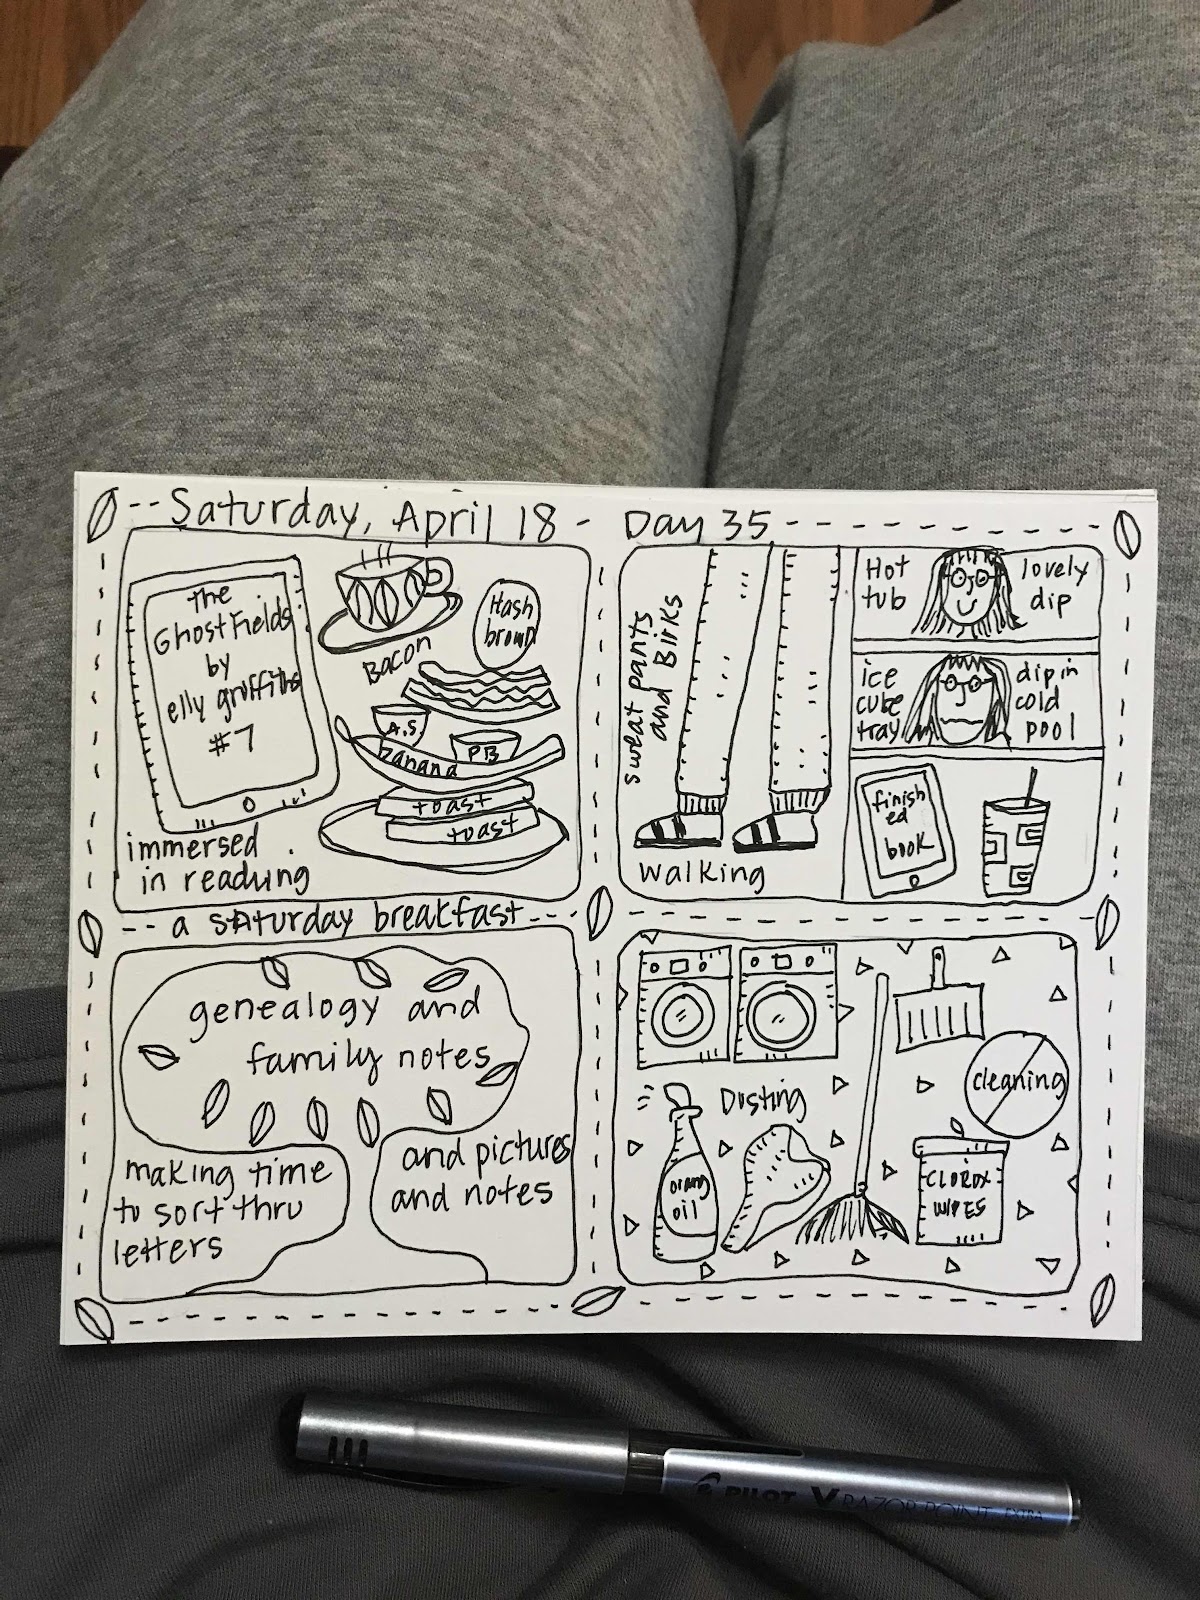 Saturday, April 18 - Day 35
the
Ghost Fields
by
elly griffiths
#7
immersed
in reading
Bacon
Hash
brown
A.S.
PB
banana
toast
toast
a Saturday breakfast
sweat pants
and Birks
walking
Hot
tub
lovely
dip
ice
cube
tray
dip in
cold
pool
finish
ed
book
genealogy and
family notes
making time
to sort thru
letters
and pictures
and notes
Dusting
cleaning
orang
oil
CLOROX
WIPES
PILOT V RAZOR POINT EXTRA